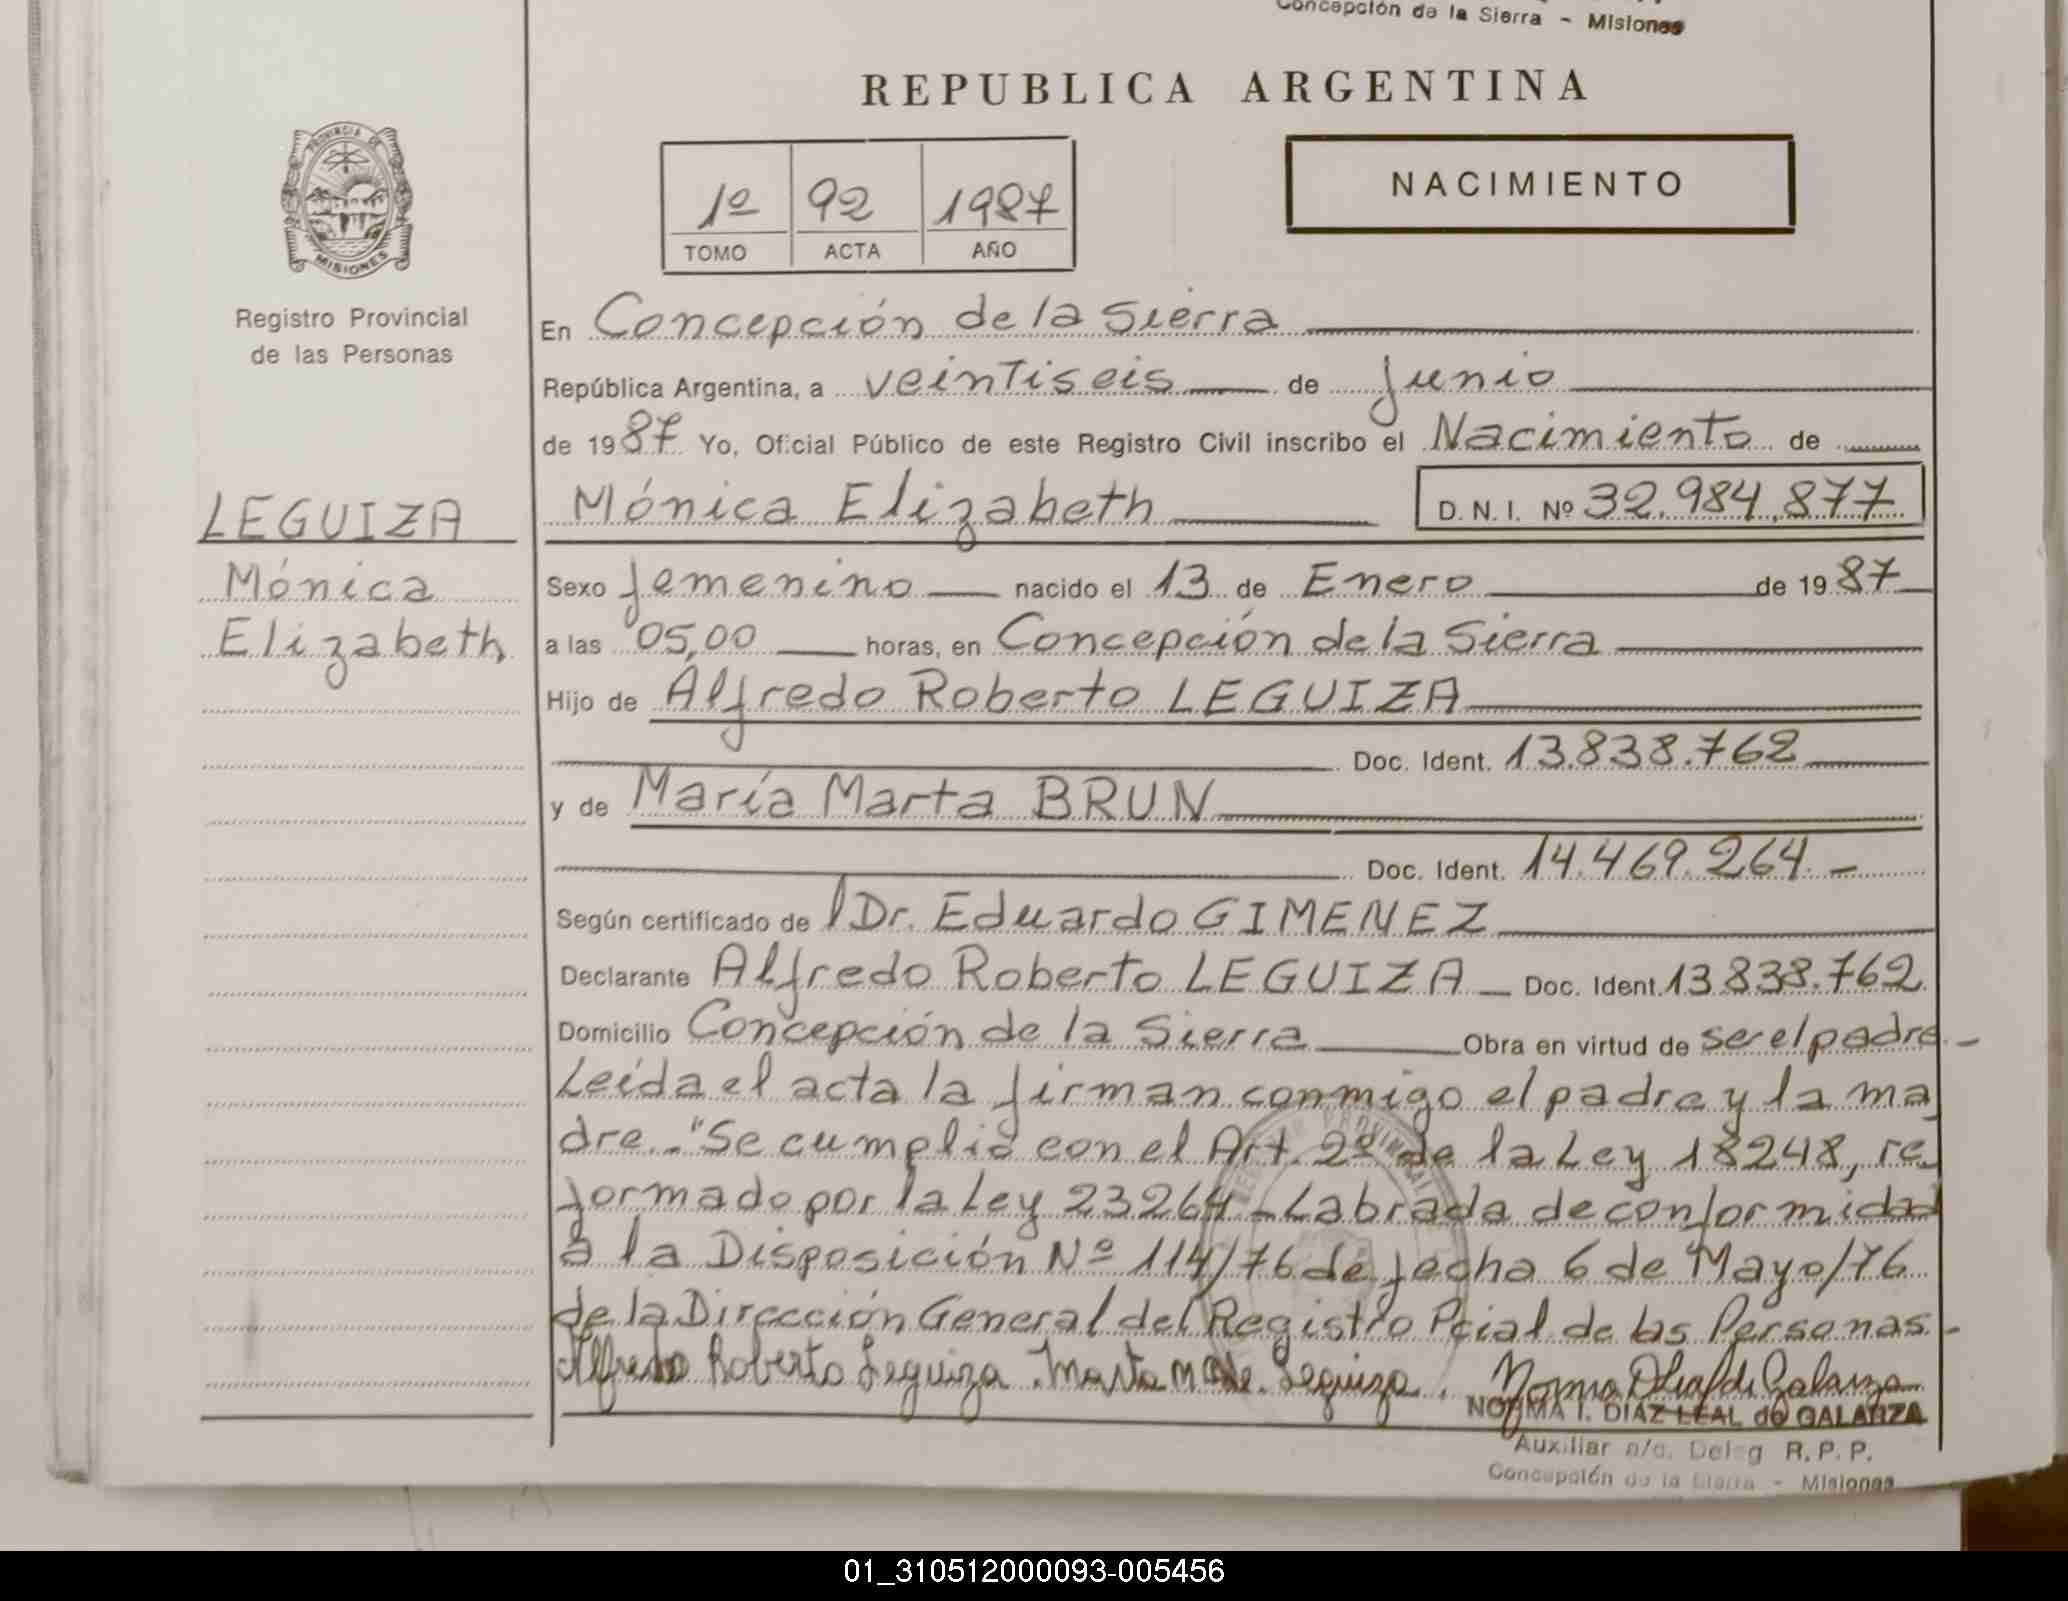 Concepción de la Sierra - Misiones
REPUBLICA ARGENTINA
PROVINCIA DE
MISIONES
1º 92 1987
TOMO ACTA AÑO
NACIMIENTO
Registro Provincial
de las Personas
En Concepción de la Sierra
República Argentina, a veintiseis de Junio
de 1987 Yo, Oficial Público de este Registro Civil inscribo el Nacimiento de
LEGUIZA
Mónica
Elizabeth
Mónica Elizabeth D.N.I. Nº 32.984.877
Sexo femenino nacido el 13 de Enero de 1987
a las 05,00 horas, en Concepción de la Sierra
Hijo de Alfredo Roberto LEGUIZA
Doc. Ident. 13.838.762
y de María Marta BRUN
Doc. Ident. 14.469.264.-
Según certificado de l Dr. Eduardo GIMENEZ
Declarante Alfredo Roberto LEGUIZA Doc. Ident. 13.838.762
Domicilio Concepción de la Sierra Obra en virtud de ser el padre.-
Leída el acta la firman conmigo el padre y la ma
dre.-"Se cumplió con el Art. 2º de la Ley 18248, re
formado por la Ley 23264-Labrada de conformidad
a la Disposición Nº 114/76 de fecha 6 de Mayo/76
de la Dirección General del Registro Pcial de las Personas.-
Alfredo Roberto Leguiza. Marta de Leguiza.
NORMA I. DIAZ LEAL de GALARZA
Auxiliar a/c. Deleg R.P.P.
Concepción de la Sierra - Misiones
01_310512000093-005456